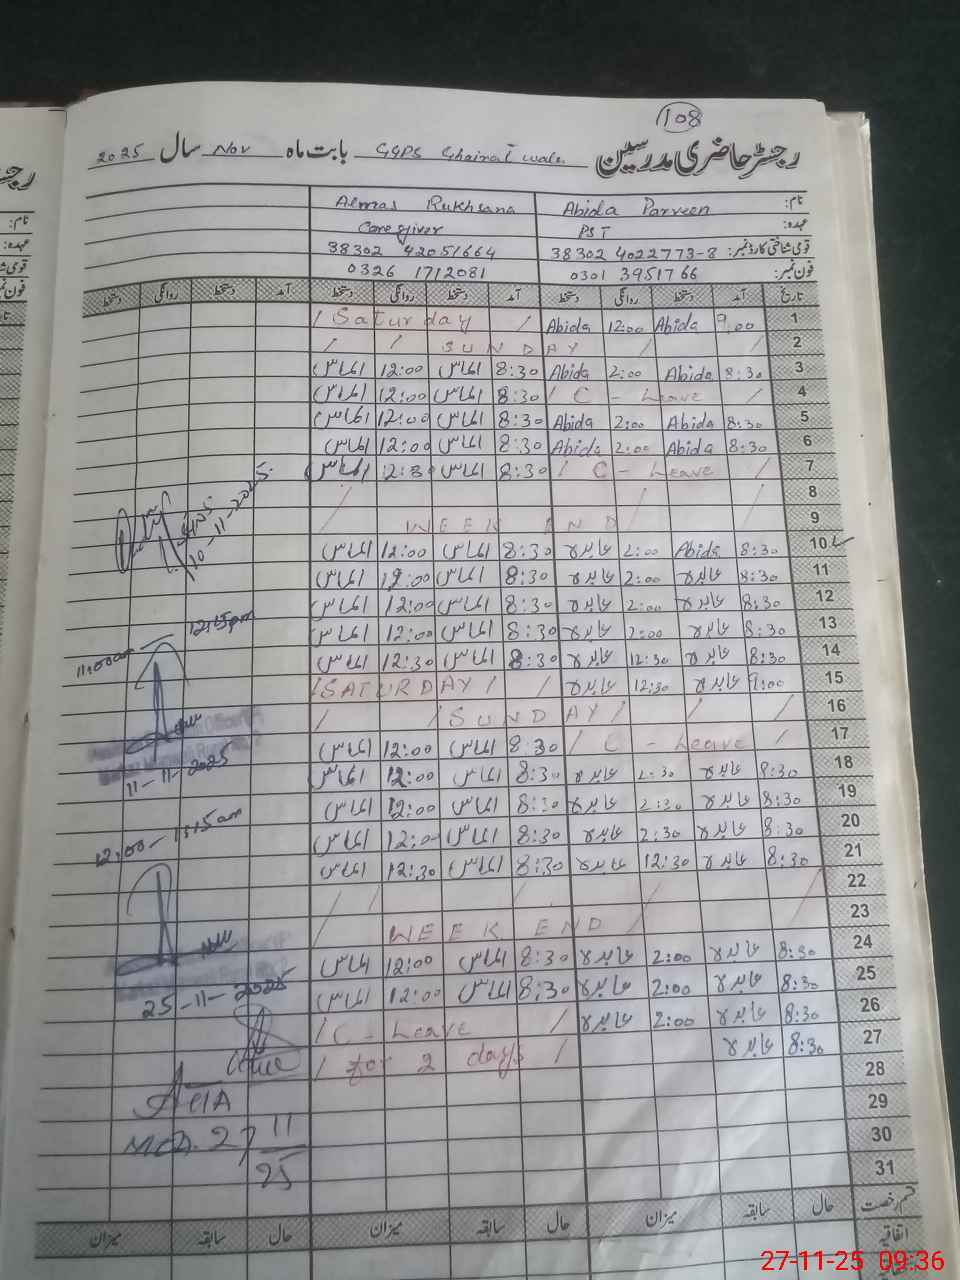 108
رجسٹر حاضری مدرسین GGPS Ghairat wala بابت ماہ Nov سال 2025
نام: Abida Parveen Almas Rukhsana
عہدہ: PST Caregiver
قومی شناختی کارڈ نمبر: 38302 4022773-8 38302 42051664
فون نمبر: 0301 3951766 0326 1712081
تاریخ آمد دستخط روانگی دستخط آمد دستخط روانگی دستخط آمد دستخط روانگی دستخط
1 9:00 Abida 12:00 Abida / Saturday /
2 / / SUNDAY / /
3 8:30 Abida 2:00 Abida 8:30 الماس 12:00 الماس
4 / C - Leave / 8:30 الماس 12:00 الماس
5 8:30 Abida 2:00 Abida 8:30 الماس 12:00 الماس
6 8:30 Abida 2:00 Abida 8:30 الماس 12:00 الماس
7 / C - Leave / 8:30 الماس 12:30 الماس
8
9 WEEK END
10 8:30 Abida 2:00 عابدہ 8:30 الماس 12:00 الماس
10-11-2025
11 8:30 عابدہ 2:00 عابدہ 8:30 الماس 12:00 الماس
12 8:30 عابدہ 2:00 عابدہ 8:30 الماس 12:00 الماس
13 8:30 عابدہ 2:00 عابدہ 8:30 الماس 12:00 الماس
11:00am - 12:15pm
14 8:30 عابدہ 12:30 عابدہ 8:30 الماس 12:30 الماس
15 9:00 عابدہ 12:30 عابدہ / SATURDAY / /
16 / / SUNDAY / / /
17 / C - Leave / 8:30 الماس 12:00 الماس
11-11-2025
18 8:30 عابدہ 2:30 عابدہ 8:30 الماس 12:00 الماس
19 8:30 عابدہ 2:30 عابدہ 8:30 الماس 12:00 الماس
20 8:30 عابدہ 2:30 عابدہ 8:30 الماس 12:00 الماس
21 8:30 عابدہ 12:30 عابدہ 8:30 الماس 12:30 الماس
22
23 WEEK END
24 8:30 عابدہ 2:00 عابدہ 8:30 الماس 12:00 الماس
25 8:30 عابدہ 2:00 عابدہ 8:30 الماس 12:00 الماس
25-11-2025
26 8:30 عابدہ 2:00 عابدہ / C - Leave /
27 8:30 عابدہ / for 2 days /
28
AEIA
29
30
27/11/25
31
قسم رخصت حال سابقہ میزان حال سابقہ میزان حال سابقہ میزان
اتفاقیہ
27-11-25 09:36